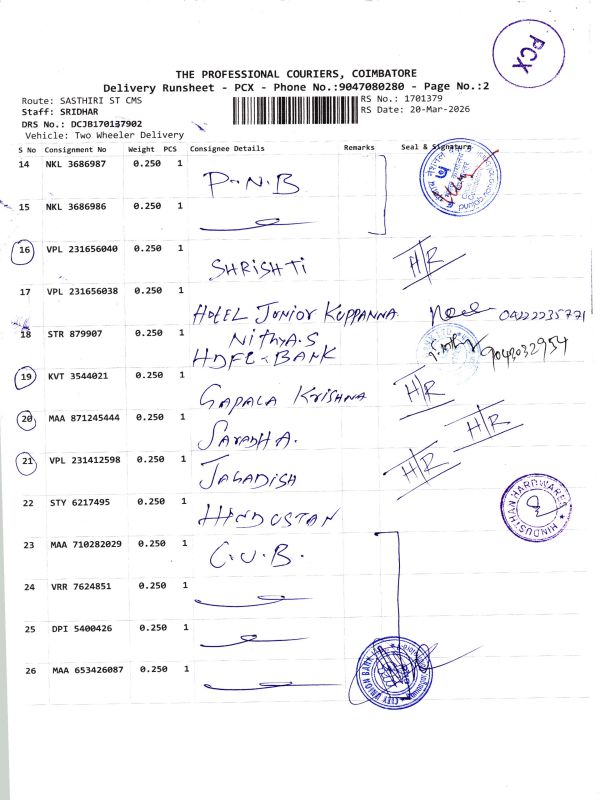 PCX
THE PROFESSIONAL COURIERS, COIMBATORE
Delivery Runsheet - PCX - Phone No.:9047080280 - Page No.:2
Route: SASTHIRI ST CMS
Staff: SRIDHAR
DRS No.: DCJB170137902
Vehicle: Two Wheeler Delivery
RS No.: 1701379
RS Date: 20-Mar-2026
S No Consignment No Weight PCS Consignee Details Remarks Seal & Signature
14 NKL 3686987 0.250 1 P.N.B
15 NKL 3686986 0.250 1
16 VPL 231656040 0.250 1 SHRISHTI H/R
17 VPL 231656038 0.250 1 HOTEL JUNIOR KUPPANNA 04222235771
18 STR 879907 0.250 1 NITHYA.S HDFC-BANK 9043032954
19 KVT 3544021 0.250 1 GAPALA KRISHNA H/R
20 MAA 871245444 0.250 1 SARADHA. H/R
21 VPL 231412598 0.250 1 JAGADISH H/R
22 STY 6217495 0.250 1 HINDUSTAN
HINDUSTHAN HARDWARES
23 MAA 710282029 0.250 1 C.U.B.
24 VRR 7624851 0.250 1
25 DPI 5400426 0.250 1
26 MAA 653426087 0.250 1
CITY UNION BANK